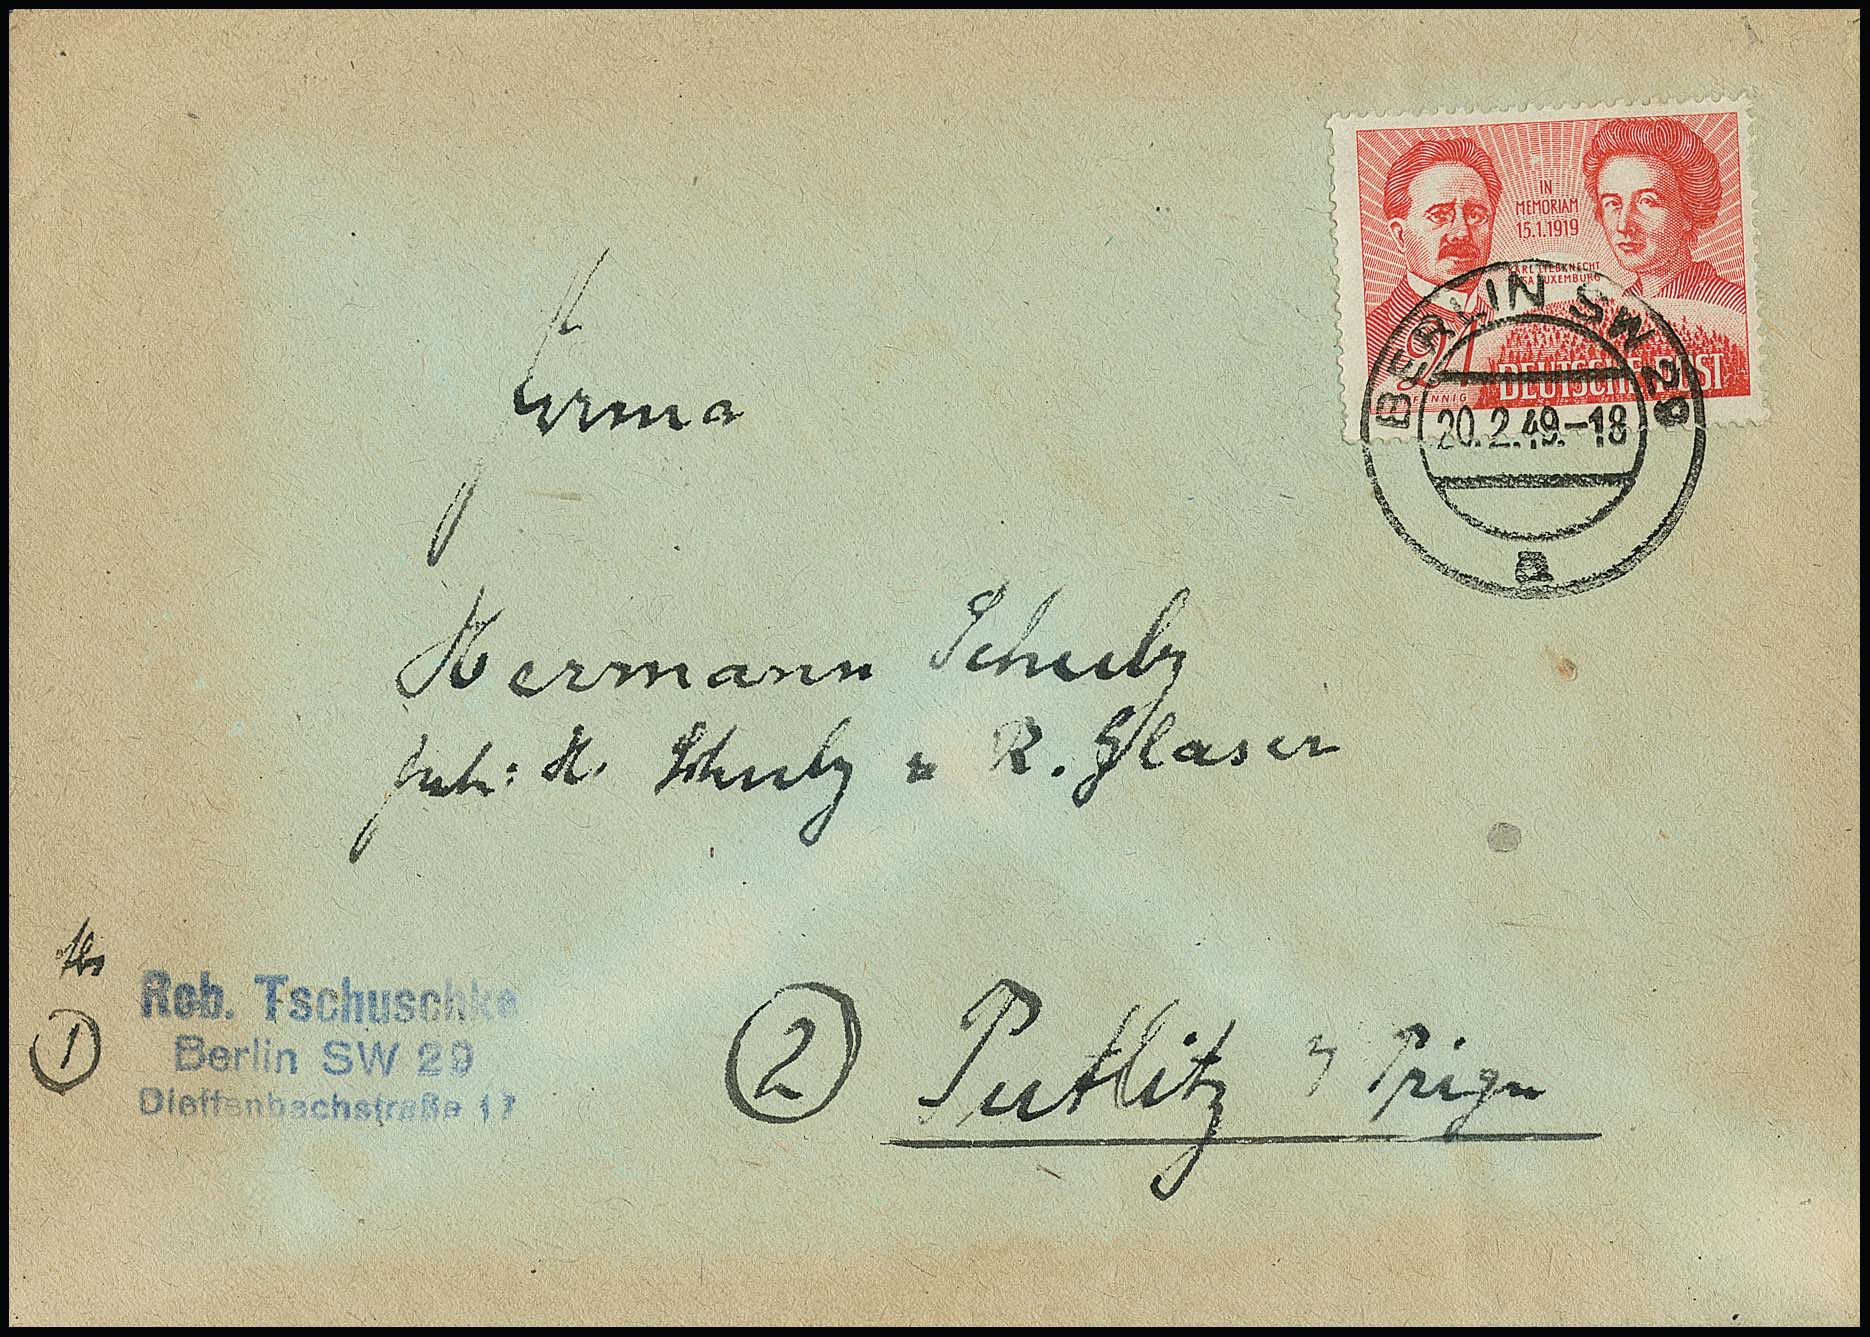 IN
MEMORIAM
15.1.1919
KARL LIEBKNECHT
ROSA LUXEMBURG
24
PFENNIG
DEUTSCHE POST
BERLIN SW 29
20.2.49.-18
a
Firma
Hermann Schulz
Inh: H. Schulz u R. Glaser
Abs
1
Rob. Tschuschke
Berlin SW 29
Dieffenbachstraße 17
2
Putlitz Prign